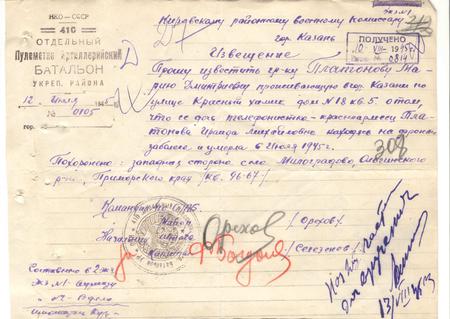 НКО – СССР
410
ОТДЕЛЬНЫЙ
Пулеметно Артиллерийский
БАТАЛЬОН
УКРЕП. РАЙОНА
12 Июля 1945 г.
№ 0105
Экз. №1
Кировскому районному военному Комиссару
гор. Казань
ПОЛУЧЕНО
10 VIII 1945 г.
№ 0814
Извещение
Прошу известить гр-ку Платонову Ма-
рию Дмитриевну проживающую гор. Казань по
улице Красный химик дом №18 кв. 5. о том,
что ее дочь телефонистка – красноармеец Пла-
тонова Ираида Михайловна находясь на фронте
заболела и умерла 6 июля 1945 г.
308
Похоронена: западная сторона села Милоградово, Ольгинского
р-н, Приморского края (Кв. 96-67)
Командир
Майор
Орехов
/Орехов/
Начальник штаба
Капитан
Составлено в 2 экз.
Экз №1 – Адресату
№2 – В дело
для вручения
13/VIII 45